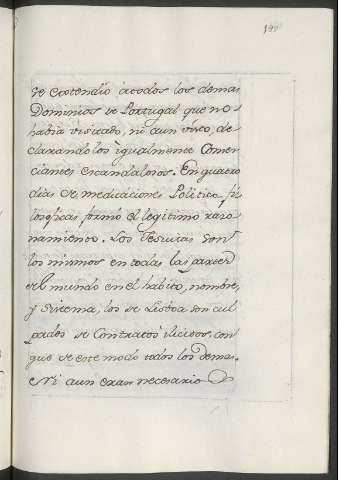 se extendió àtodos los demas
Dominios de Portugal que no
habia visitado, ni aun visto, de
clarandolos igualmente Comer
ciantes escandalosos. En quatro
dias de medicaciones Politico fi
losoficas formó el legitimo razo
namiento. Los Jesuitas son
los mismos en todas las partes
del mundo en el habito, nombre,
y sistema, los de Lisboa son cul
pados de Contratos ilicitos, con
que de este modo todos los demas.
Ni aun eran necesario